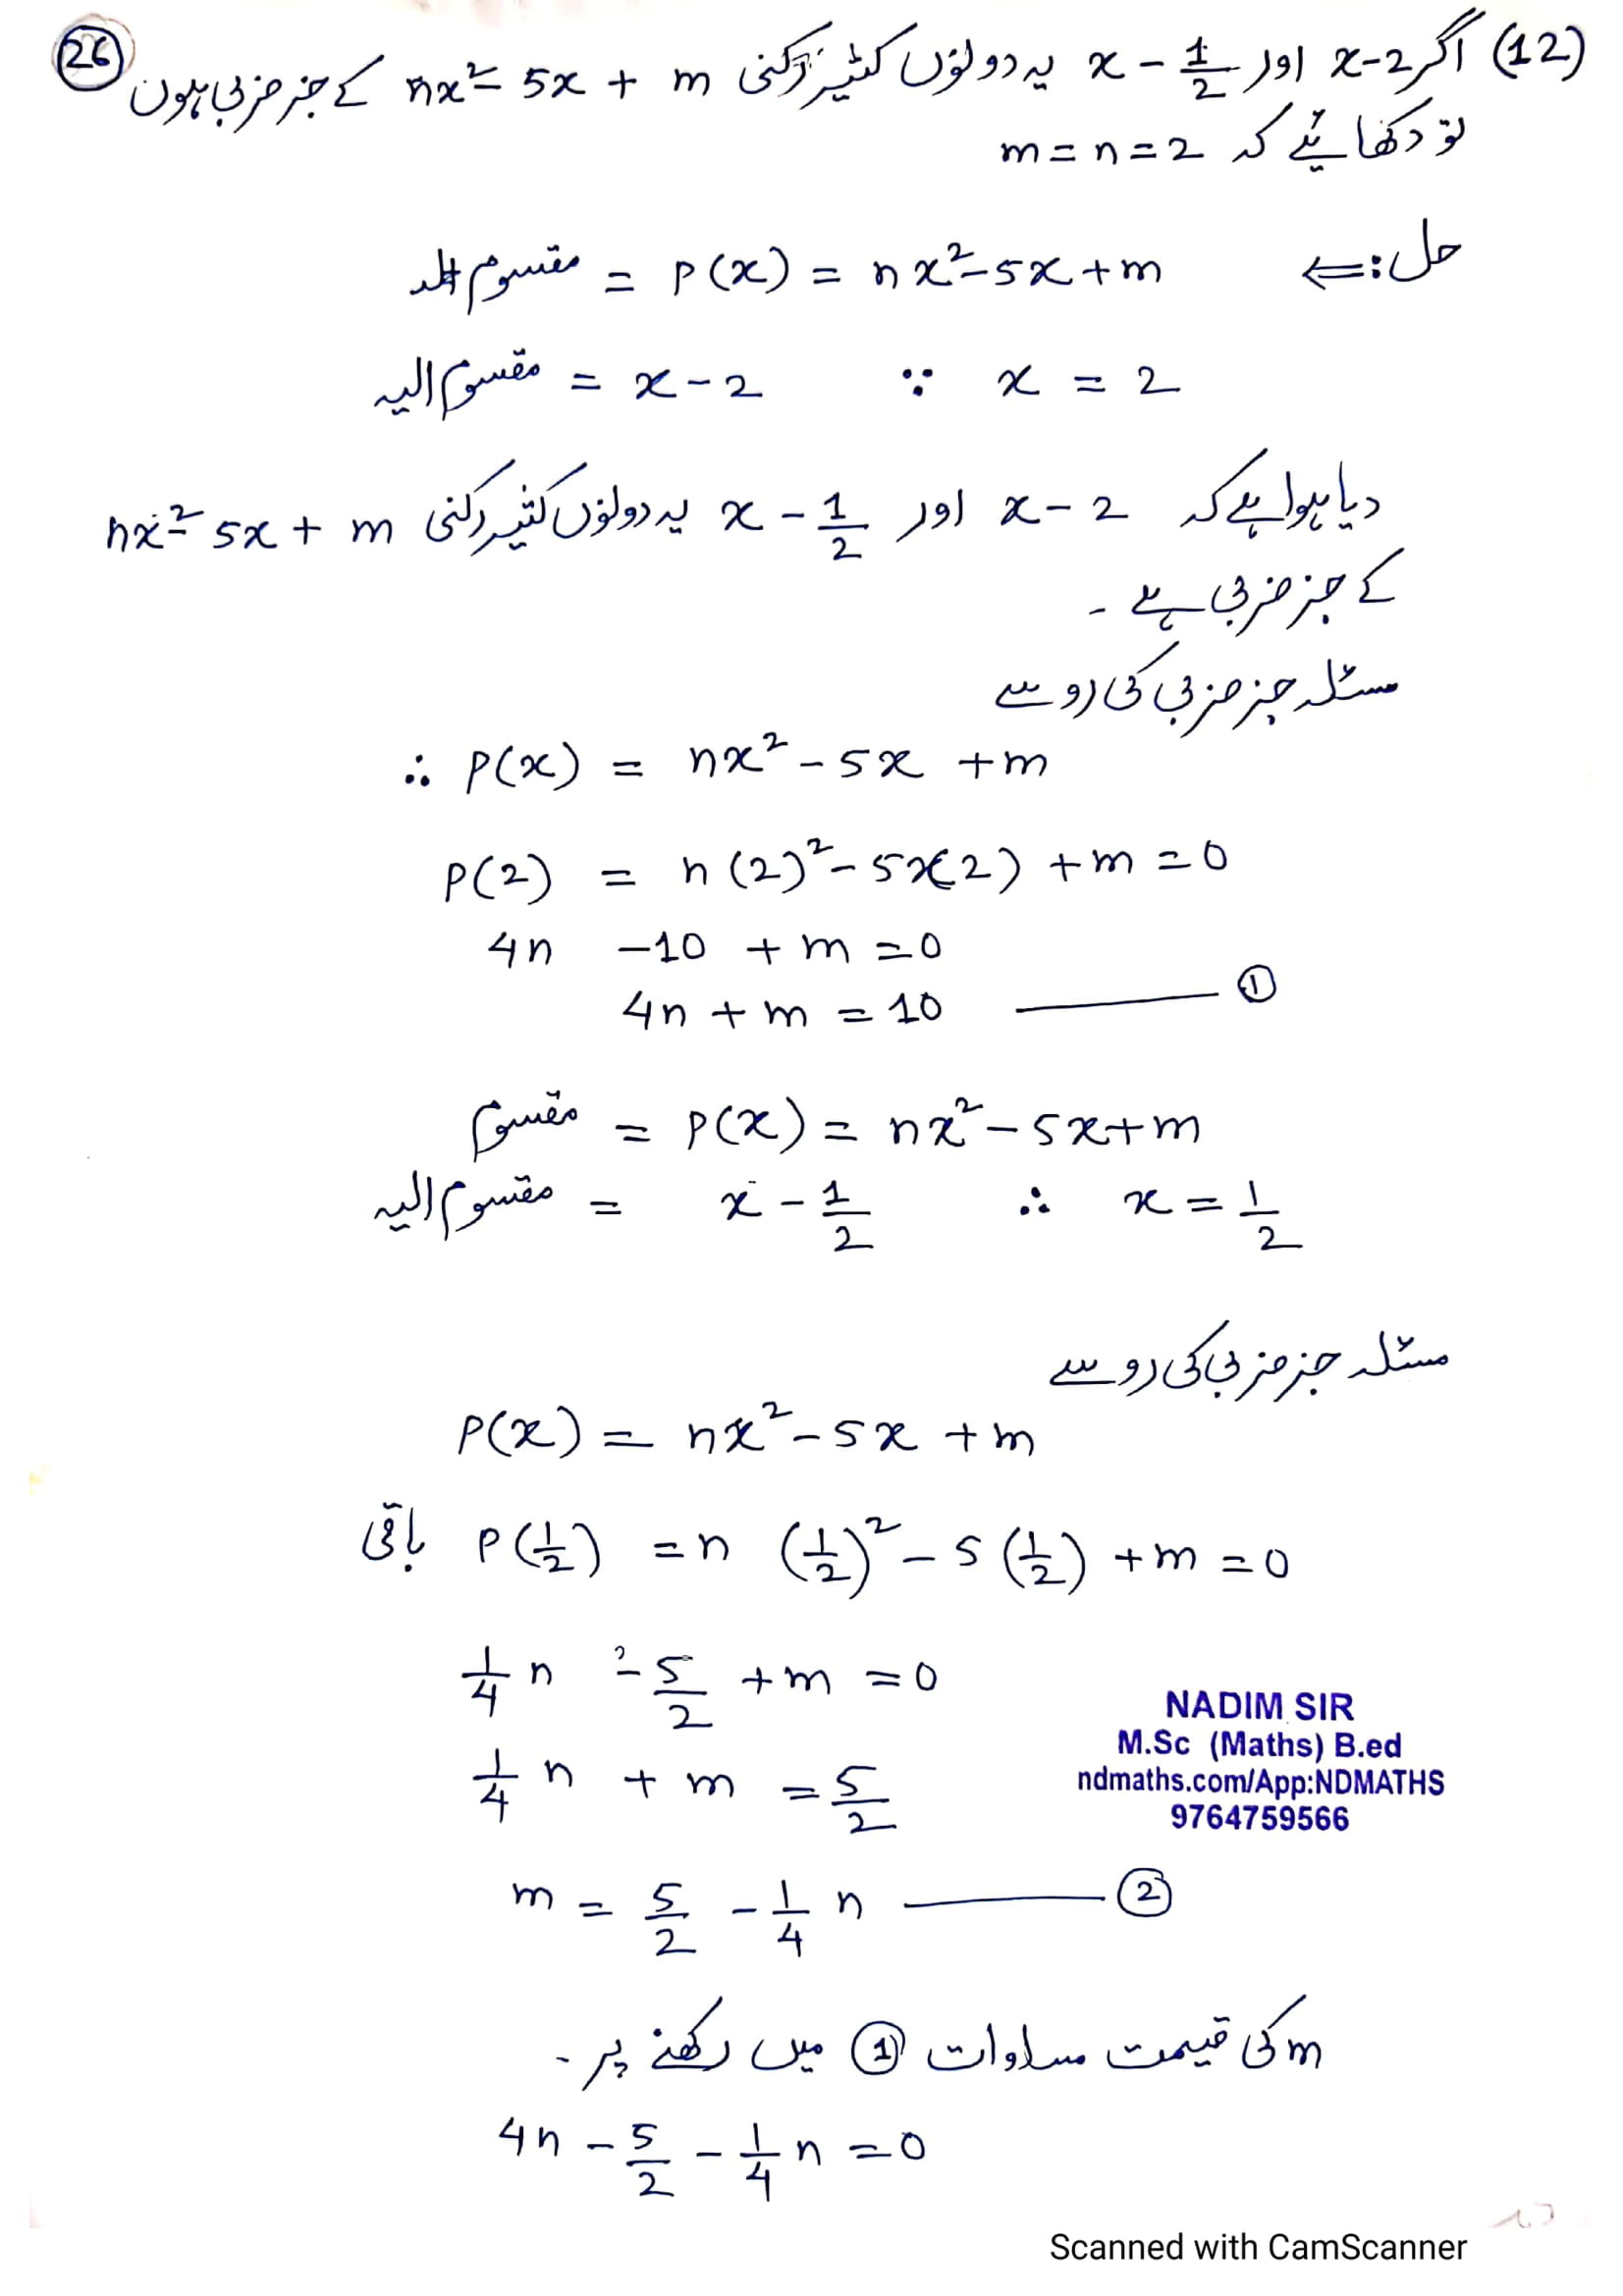 (12) اگر x-2 اور x - 1/2 یہ دونوں کثیر رکنی nx² - 5x + m کے جز ضربی ہوں
26
تو دکھائیے کہ m = n = 2
حل :⇐
مقسوم = P(x) = nx² - 5x + m
مقسوم الیہ = x - 2 ∵ x = 2
دیا ہوا ہے کہ x - 2 اور x - 1/2 یہ دونوں کثیر رکنی nx² - 5x + m
کے جز ضربی ہے ۔
مسئلہ جز ضربی کی رو سے
∴ P(x) = nx² - 5x + m
P(2) = n(2)² - 5x(2) + m = 0
4n - 10 + m = 0
4n + m = 10 ——— ①
مقسوم = P(x) = nx² - 5x + m
مقسوم الیہ = x - 1/2 ∴ x = 1/2
مسئلہ جز ضربی کی رو سے
P(x) = nx² - 5x + m
باقی P(1/2) = n (1/2)² - 5 (1/2) + m = 0
1/4 n - 5/2 + m = 0
1/4 n + m = 5/2
m = 5/2 - 1/4 n ——— ②
m کی قیمت مساوات ① میں رکھنے پر ۔
4n - 5/2 - 1/4 n = 0
NADIM SIR
M.Sc (Maths) B.ed
ndmaths.com/App:NDMATHS
9764759566
Scanned with CamScanner